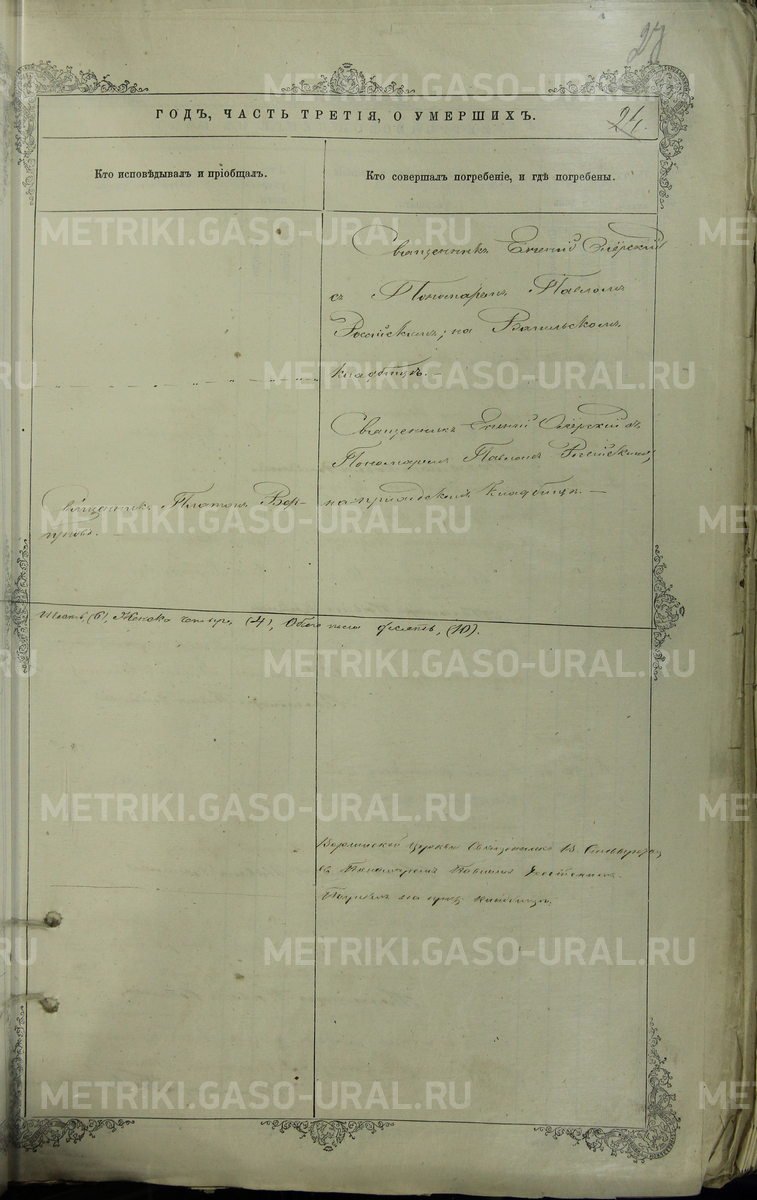 27
24.
ГОДЪ, ЧАСТЬ ТРЕТІЯ, О УМЕРШИХЪ.
Кто исповѣдывалъ и пріобщалъ.
Кто совершалъ погребеніе, и гдѣ погребены.
Священникъ Евгеній
съ Пономаремъ Павломъ
Россійскимъ; на
кладбищѣ. —
Священникъ Евгеній съ
Пономаремъ Павломъ Россійскимъ,
на приходскомъ кладбищѣ. —
Священникъ Платонъ
Шесть (6), Женска четыре, (4), Обоего пола десять, (10).
церкви Священникъ
съ Пономаремъ Павломъ Россійскимъ.
на кладбищѣ.
METRIKI.GASO-URAL.RU